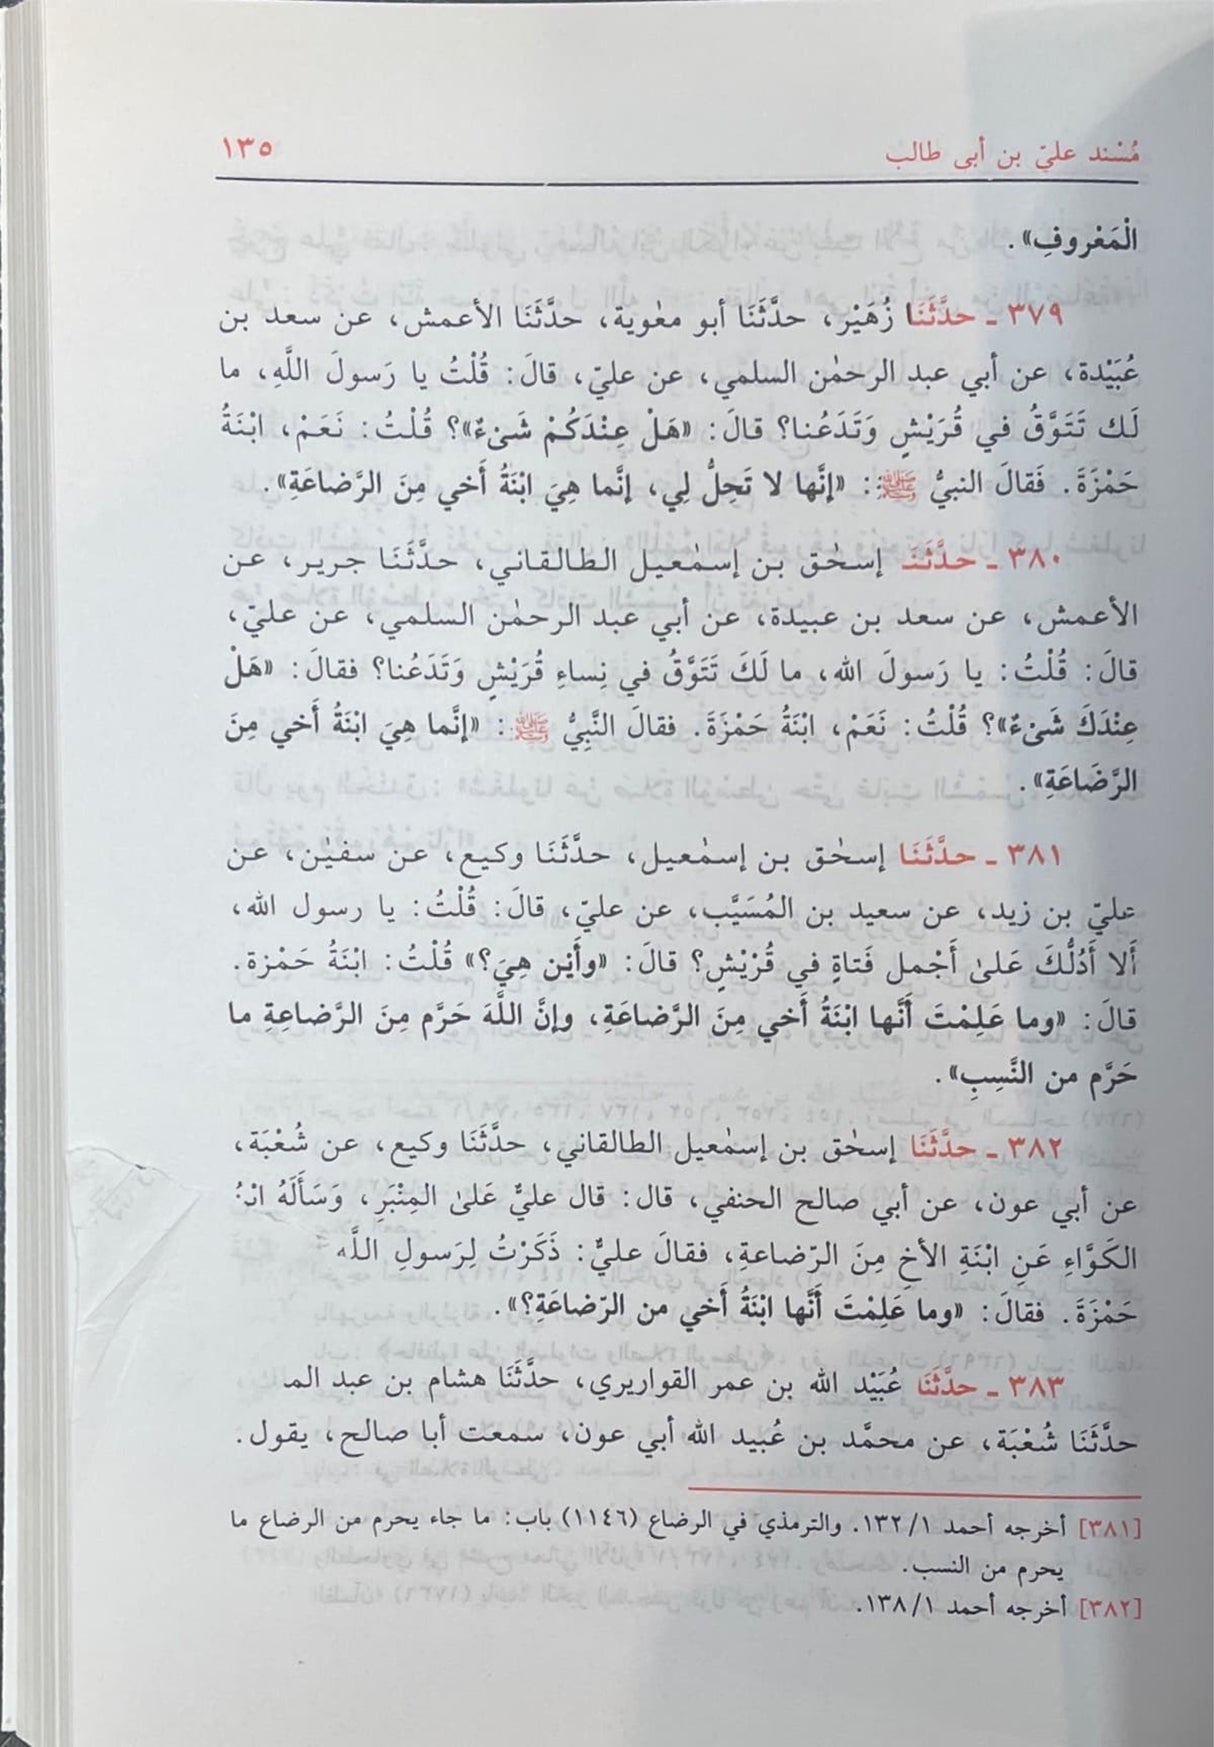 مُسْند عليّ بن أبى طالب ١٣٥
الْمَعْروفِ».
٣٧٩ ـ حدَّثَنَا زُهَيْر، حدَّثَنَا أبو معٰوية، حدَّثَنَا الأعمش، عن سعد بن
عُبَيْدة، عن أبي عبد الرحمٰن السلمي، عن عليّ، قالَ: قُلْتُ يا رَسولَ اللَّهِ، ما
لَك تَتَوَّقُ في قُرَيْشٍ وَتَدَعُنا؟ قالَ: «هَلْ عِنْدَكُمْ شَىْءٌ»؟ قُلْتُ: نَعَمْ، ابْنَةُ
حَمْزَةَ. فَقالَ النبيُّ ﷺ: «إنَّها لا تَحِلُّ لِي، إنَّما هِيَ ابْنَةُ أَخي مِنَ الرَّضاعَةِ».
٣٨٠ ـ حدَّثَنَا إسحٰق بن إسمٰعيل الطالقاني، حدَّثَنَا جرير، عن
الأعمش، عن سعد بن عبيدة، عن أبي عبد الرحمٰن السلمي، عن عليّ،
قالَ: قُلْتُ: يا رَسولَ الله، ما لَكَ تَتَوَّقُ في نِساءِ قُرَيْشٍ وَتَدَعُنا؟ فقالَ: «هَلْ
عِنْدَكَ شَىْءٌ»؟ قُلْتُ: نَعَمْ، ابْنَةُ حَمْزَةَ. فقالَ النَّبِيُّ ﷺ: «إنَّما هِيَ ابْنَةُ أَخي مِنَ
الرَّضَاعَةِ».
٣٨١ ـ حدَّثَنَا إسحٰق بن إسمٰعيل، حدَّثَنَا وكيع، عن سفيٰن، عن
عليّ بن زيد، عن سعيد بن المُسَيَّب، عن عليّ، قالَ: قُلْتُ: يا رسول الله،
أَلا أَدُلُّكَ عَلىٰ أَجْمل فَتاةٍ في قُرَيْشٍ؟ قالَ: «وأَيْن هِيَ؟» قُلْتُ: ابْنَةُ حَمْزة.
قالَ: «وما عَلِمْتَ أَنَّها ابْنَةُ أَخي مِنَ الرَّضاعَةِ، وإنَّ اللَّهَ حَرَّم مِنَ الرَّضاعِةِ ما
حَرَّم من النَّسِبِ».
٣٨٢ ـ حدَّثَنَا إسحٰق بن إسمٰعيل الطالقاني، حدَّثَنَا وكيع، عن شُعْبَة،
عن أبي عون، عن أبي صالح الحنفي، قال: قال عليٌّ عَلىٰ المِنْبَرِ، وَسَأَلَهُ
الكَوَّاءِ عَنِ ابْنَةِ الأخِ مِنَ الرّضاعةِ، فقالَ عليٌّ: ذَكَرْتُ لِرَسولِ اللَّه
حَمْزَةَ. فقالَ: «وما عَلِمْتَ أَنَّها ابْنَةُ أَخي من الرّضاعَةِ؟».
٣٨٣ ـ حدَّثَنَا عُبَيْد الله بن عمر القواريري، حدَّثَنَا هشام بن عبد
حدَّثَنَا شُعْبَة، عن محمَّد بن عُبيد الله أبي عون، سمعت أبا صالح، يقول.
[٣٨١] أخرجه أحمد ١/ ١٣٢. والترمذي في الرضاع (١١٤٦) باب: ما جاء يحرم من الرضاع ما
يحرم من النسب.
[٣٨٢] أخرجه أحمد ١/ ١٣٨.